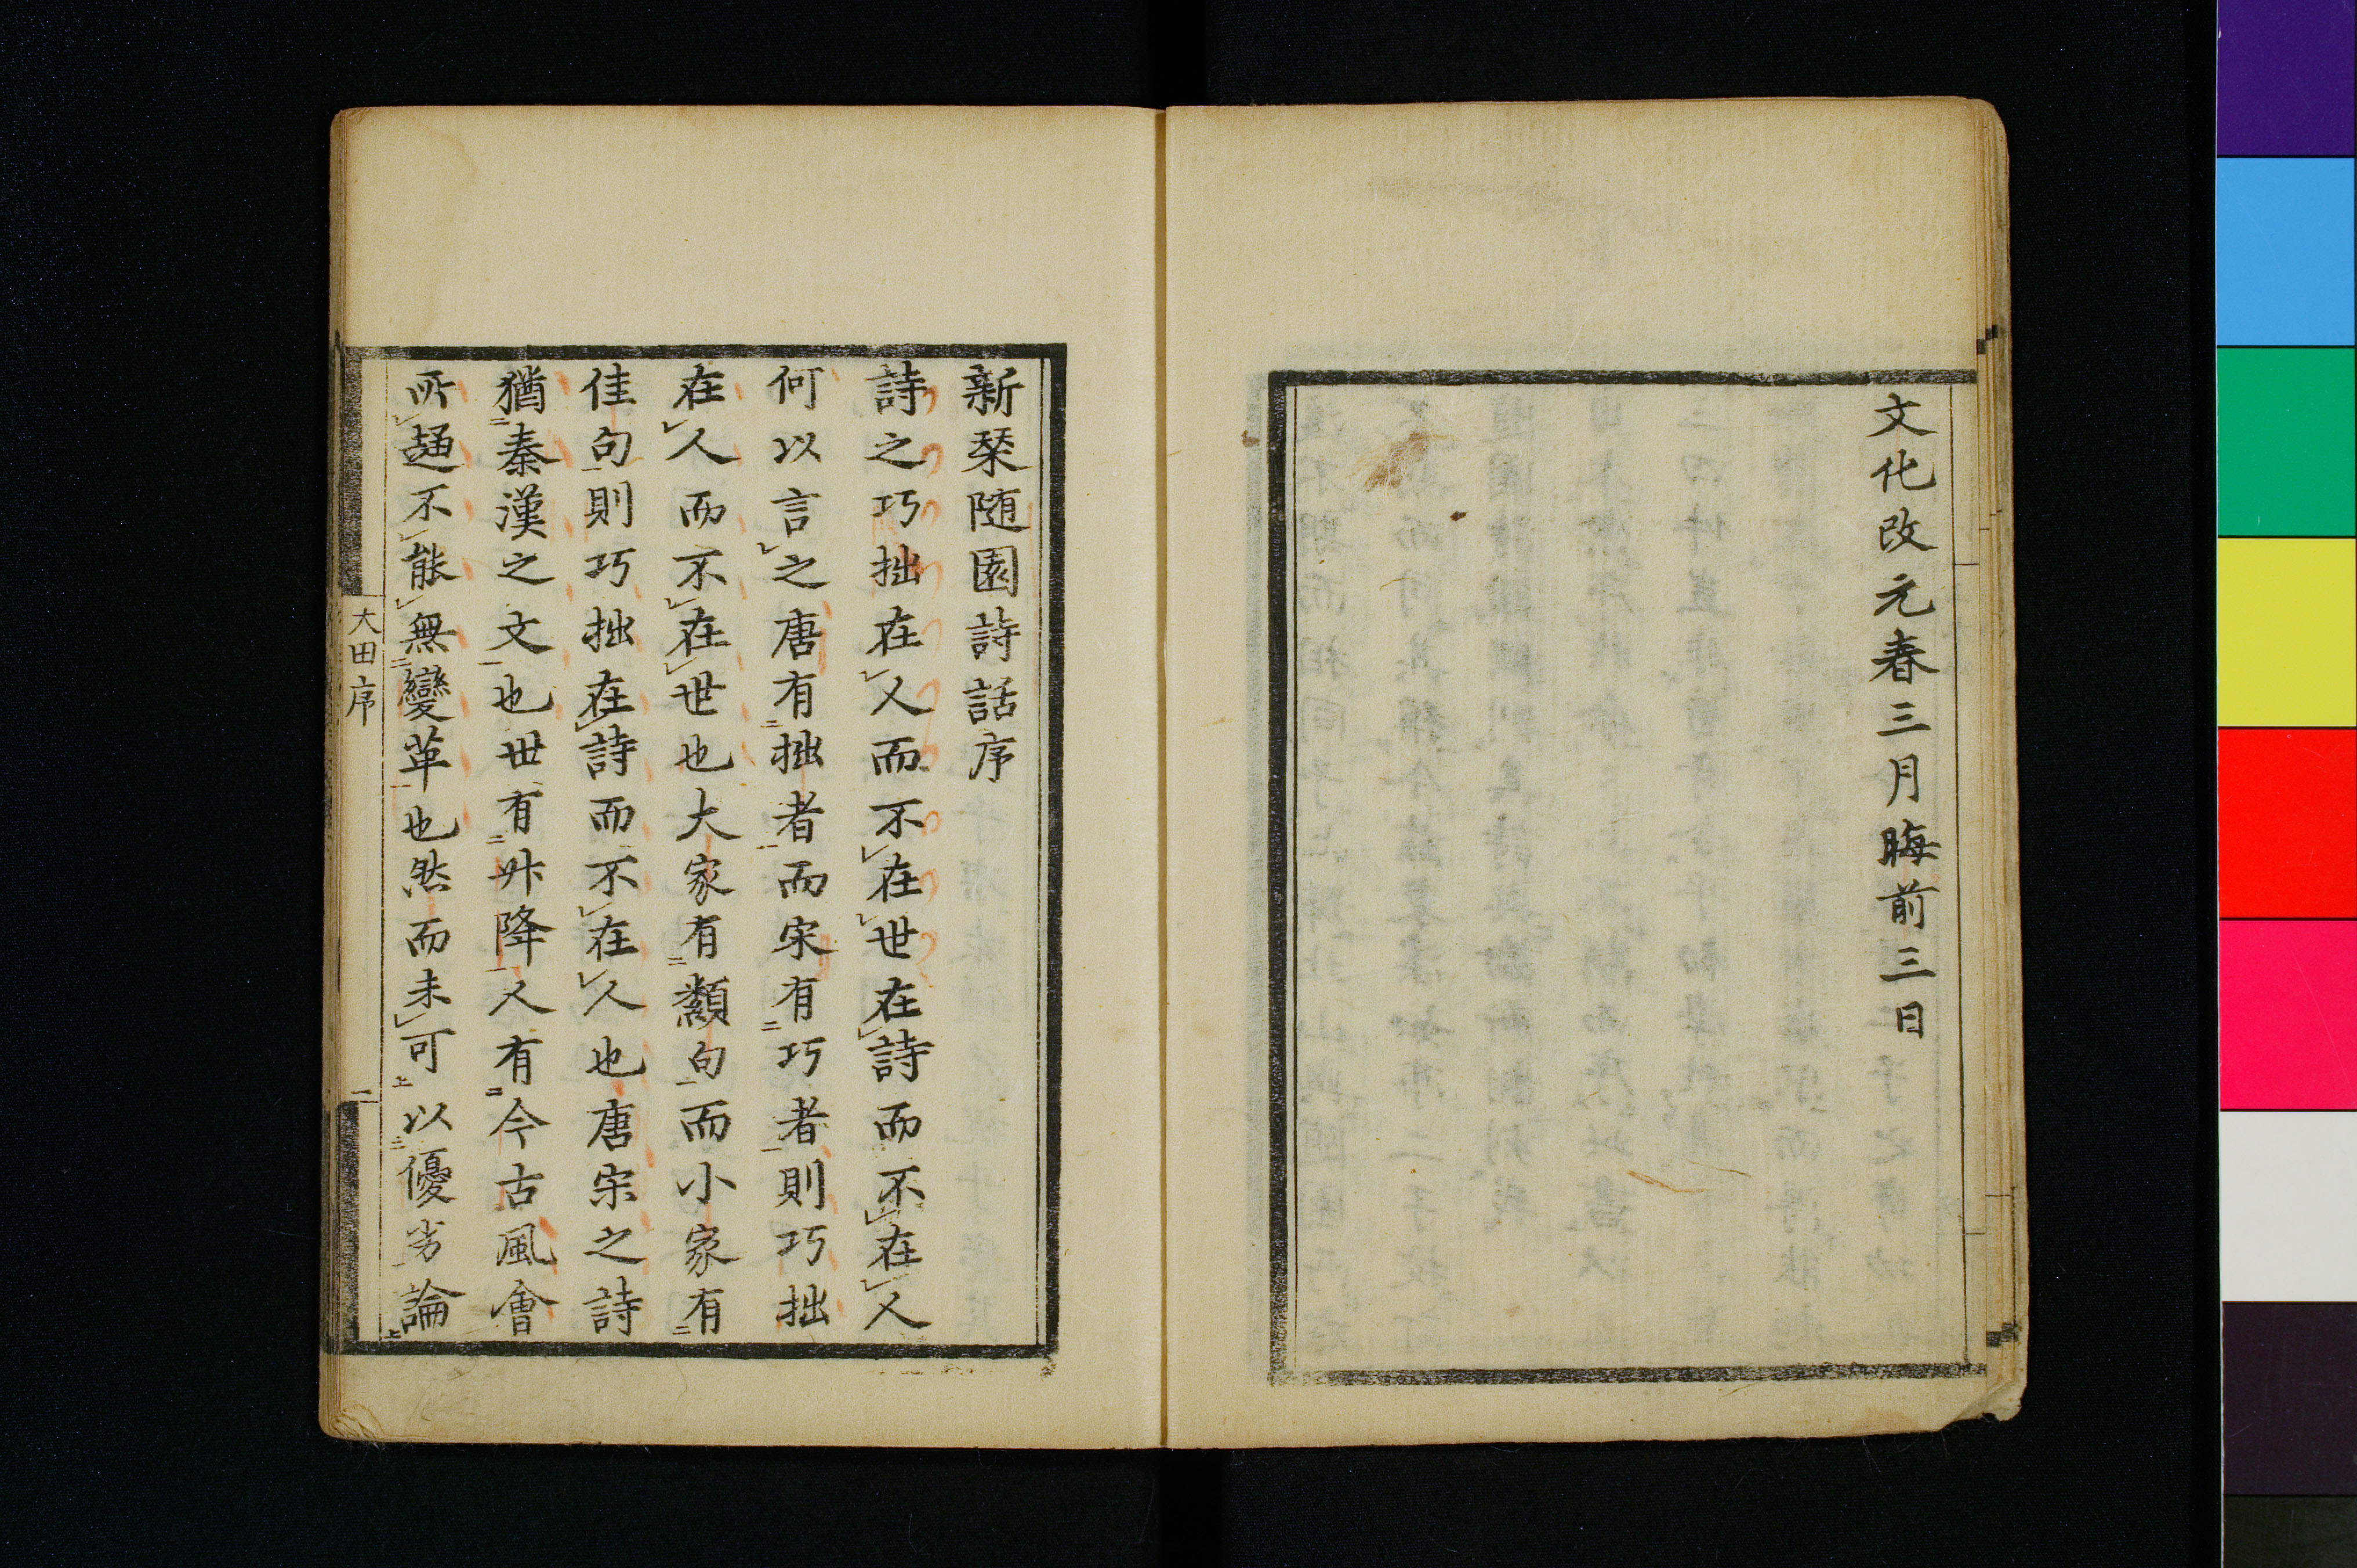 文化改元春三月晦前三日
新栞随園詩話序
詩之巧拙在人而不在世在詩而不在人
何以言之唐有拙者而宋有巧者則巧拙
在人而不在世也大家有纇句而小家有
佳句則巧拙在詩而不在人也唐宋之詩
猶秦漢之文也世有升降人有今古風會
所趨不能無變革也然而未可以優劣論
大田序
一